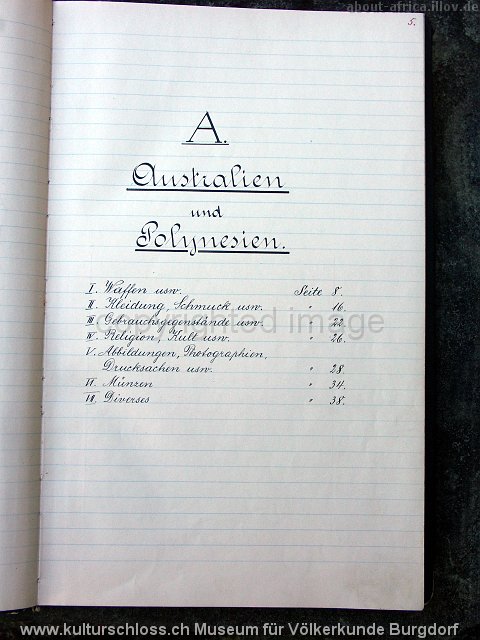 about-africa.illov.de
5.
A.
Australien
und
Polynesien.
I. Waffen usw. Seite 8.
II. Kleidung, Schmuck usw. " 16.
III. Gebrauchsgegenstände usw. " 22.
IV. Religion, Kult usw. " 26.
V. Abbildungen, Photographien,
Drucksachen usw. " 28.
VI. Münzen " 34.
VII. Diverses " 38.
copyrighted image
www.kulturschloss.ch Museum für Völkerkunde Burgdorf